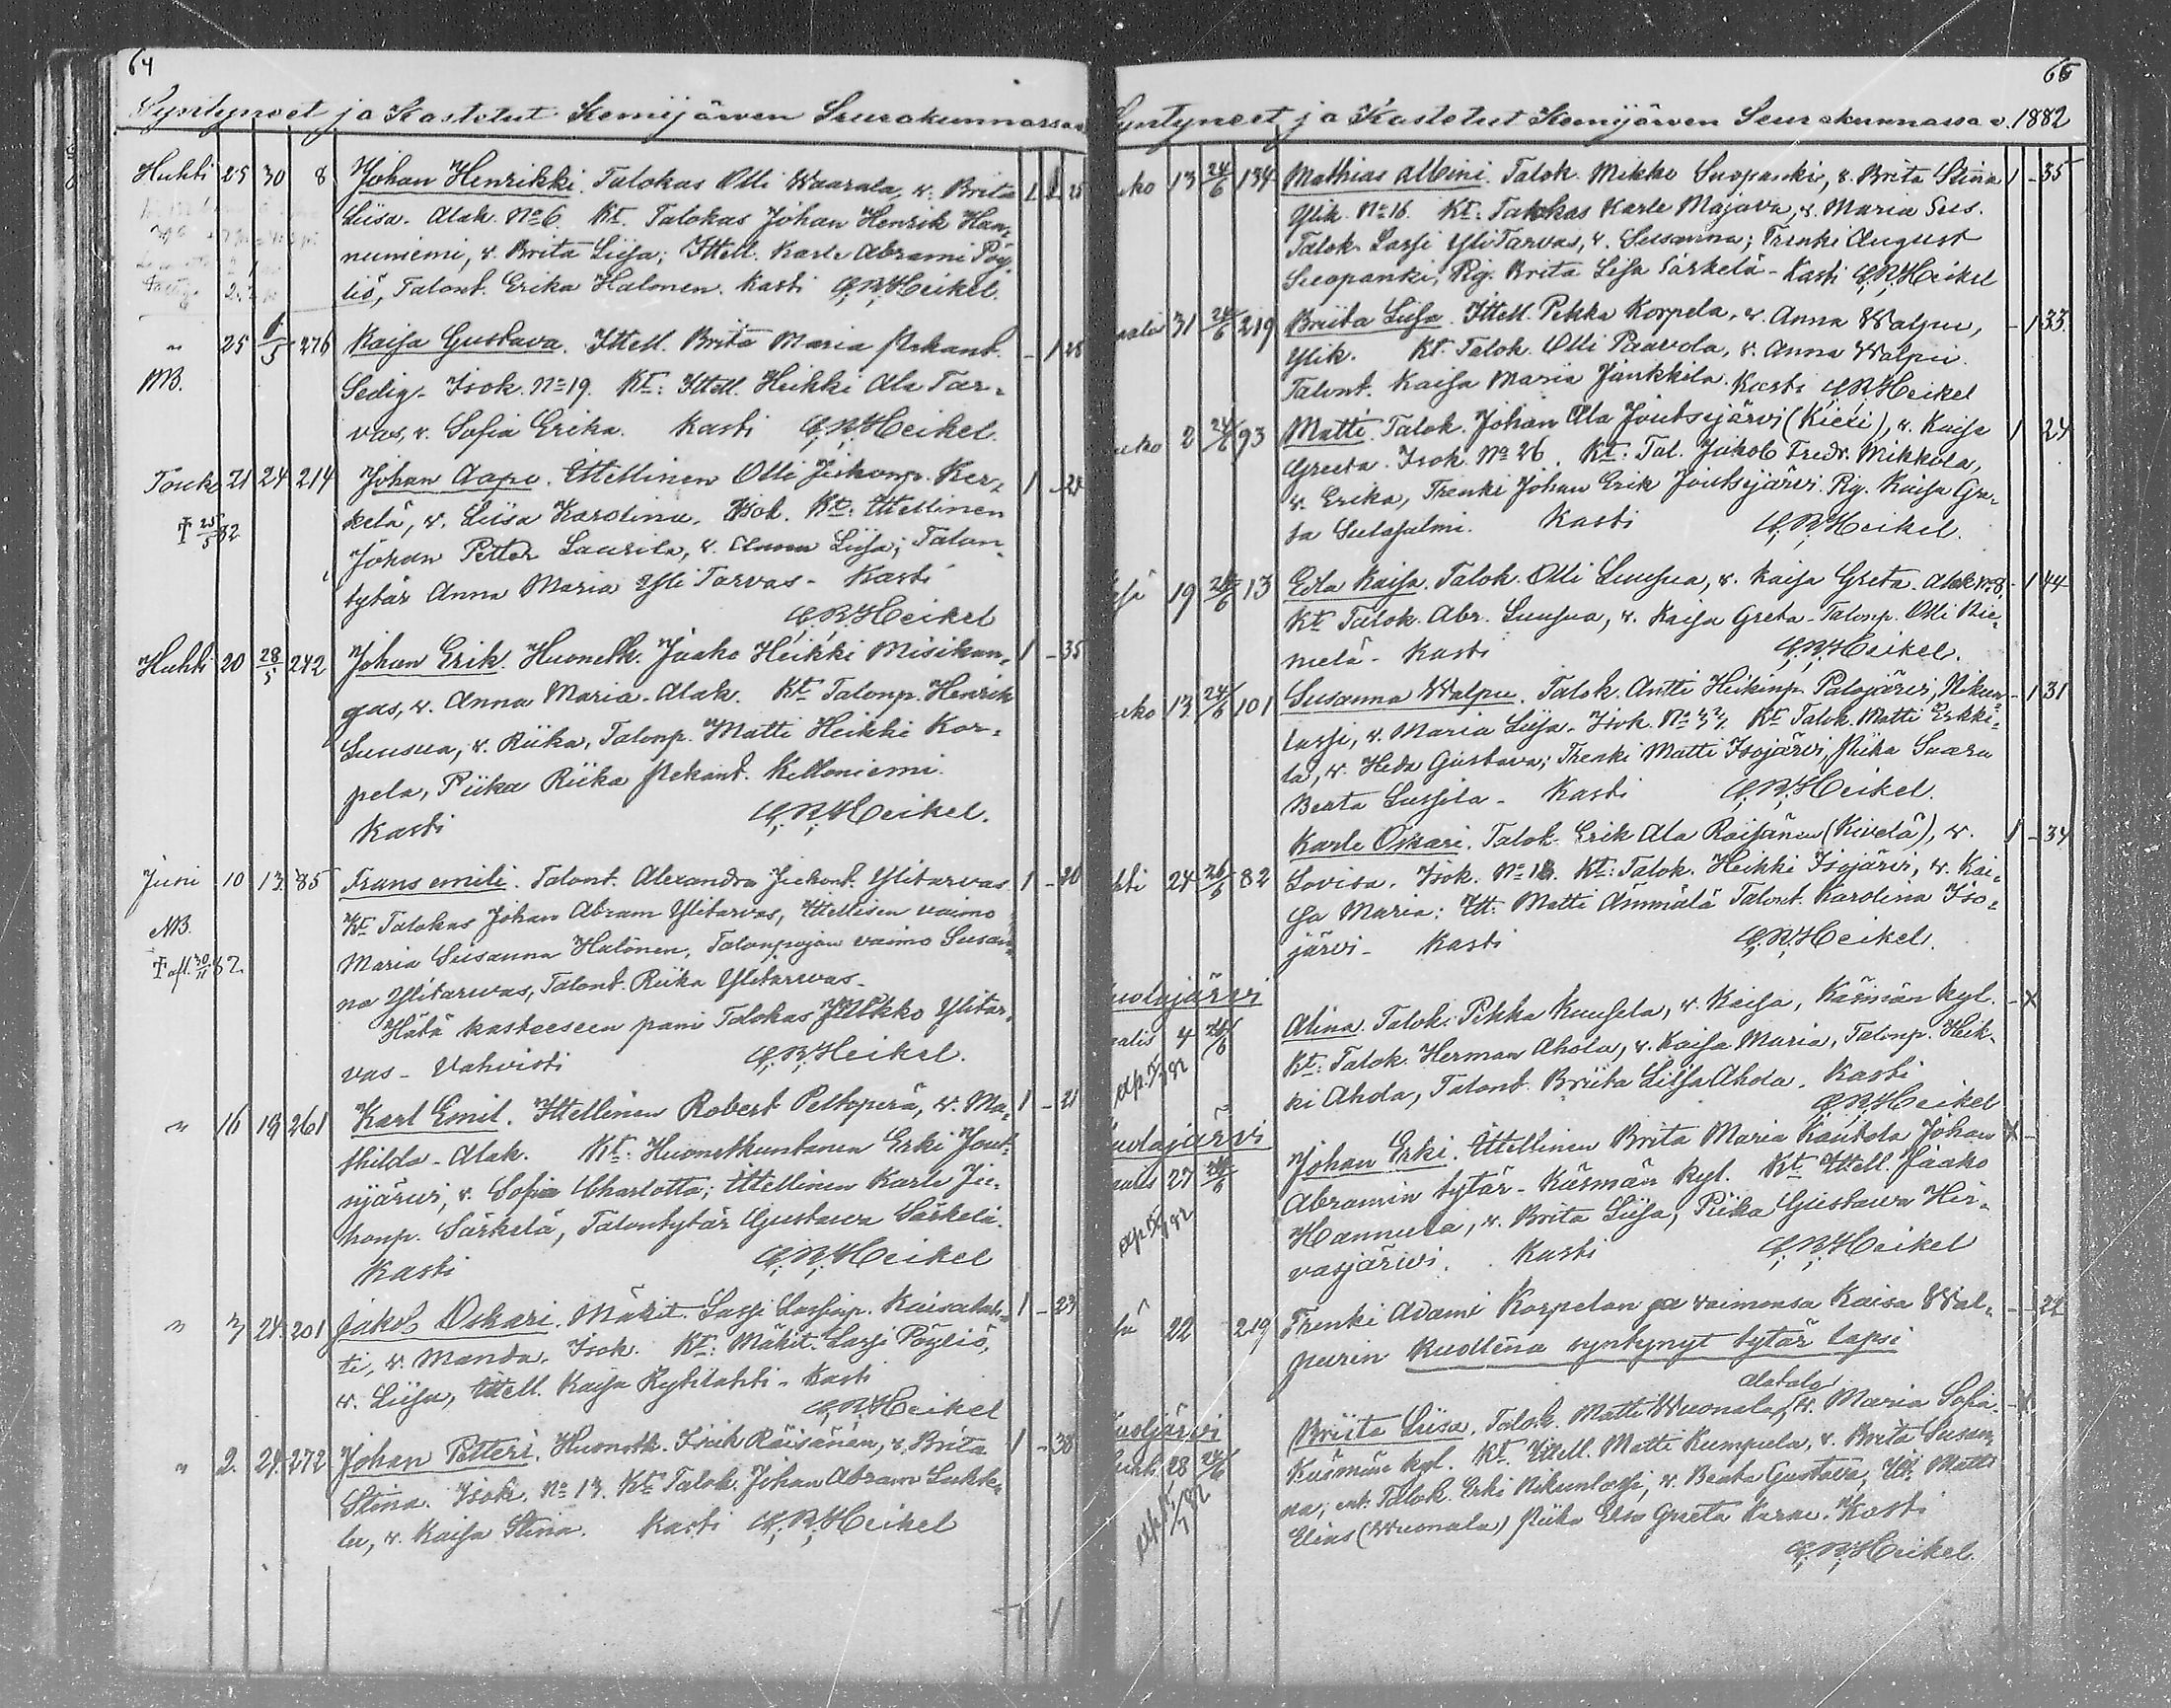 64
Syntyneet ja Kastetut Kemijärwen Seurakunnassa
Huhti 25 30 8 Johan Henrikki. Talokas Olli Waarala, v. Brita 1 - 25
Liisa. Alak. No 6. Kt. Talokas Johan Henrik Han-
nuniemi, v. Brita Liisa; Ittell. Karle Abrami Pöy-
liö, Talont. Erika Halonen. Kasti C.R.Heikel.
" 25 1/5 276 Kaisa Gustava. Ittell. Brita Maria Rekant. - 1 28
NB. Sedig. Isok. No 19. Kt: Ittell. Heikki Ala Tar-
vas, v. Sofia Erika. Kasti C.R.Heikel.
Touko 21 24 214 Johan Aapo. Ittellinen Olli Juhonp. Ker- 1 - 24
kelä, v. Liisa Karolina. Isok. Kt: Ittellinen
† 25/5 82 Johan Petter Laurila, v. Anna Liisa; Talon-
tytär Anna Maria Yli Tarvas - Kasti
C.R.Heikel
Huhti 20 28/5 242 Johan Erik. Huonelk. Jaako Heikki Misikan- 1 - 35
gas, v. Anna Maria. Alak. Kt. Talonp. Henrik
Luusua, v. Riika, Talonp. Matti Heikki Kor-
pela, Piika Riika Rekant. Kelloniemi.
Kasti C.R.Heikel.
Juni 10 13 85 Frans emili. Talont. Alexandra Juhont. Ylitarvas 1 - 20
NB. Kt. Talokas Johan Abram Ylitarvas, Ittellisen vaimo
Maria Susanna Halonen, Talonpojan vaimo Susan-
† afl. 30/11 82. na Ylitarwas, Talont. Riika Ylitarwas.
Hätä kasteeseen pani Talokas Mikko Ylitar-
vas - Vahvisti C.R.Heikel.
" 16 18 261 Karl Emil. Ittellinen Robert Peltoperä, v. Ma- 1 - 21
thilda - Alak. Kt: Huonetkuntanen Erki Jout-
sijärvi, v. Sofia Charlotta; Ittellinen Karle Ju-
honp. Särkelä, Talontytär Gustawa Särkelä.
Kasti C.R.Heikel
" 3 24 201 Jakob Oskari. Mäkit. Lassi Lassinp. Kuisalah- 1 - 23
ti, v. Manda. Isok. Kt: Mäkit. Lassi Pöyliö,
v. Liisa, Ittell. Kaisa Kytilahti - Kasti
C.R.Heikel
" 2. 24. 272 Johan Petteri. Huonetk. Isak Räisänen, v. Brita 1 - 38
Stina. Isok. No 13. Kt: Talok. Johan Abram Luhta-
la, v. Kaisa Stina. Kasti C.R.Heikel
65
Syntyneet ja Kastetut Kemijärwen Seurakunnassa v. 1882
uko 13 24/6 134 Mathias Albini. Talok. Mikko Suopanki, v. Brita Stina 1 - 35
Ylik. No 16. Kt: Talokas Karle Majava, v. Maria Sus.
Talok. Lassi Yli Tarvas, v. Susanna; Trenki August
Suopanki, Pig. Brita Lisa Särkelä - Kasti C.R.Heikel
aalis 31 24/6 219 Briita Liisa. Ittell. Pekka Korpela, v. Anna Walpu, - 1 33
Ylik. Kt. Talok. Olli Paavola, v. Anna Walpu.
Talont. Kaisa Maria Jänkkilä. Kasti C.R.Heikel
uko 2 24/6 93 Matti. Talok. Johan Ala Joutsijärvi (Kieri), v. Kaisa 1 24
Greeta. Isok. No 26. Kt: Tal. Jakob Fredr. Mikkola,
v. Erika, Trenki Johan Erik Joutsijärvi. Pig. Kaisa Gre-
ta Sulasalmi. Kasti C.R.Heikel.
19 24/6 13 Eda Kaisa. Talok. Olli Luusua, v. Kaisa Greta. Alak No 8. - 1 44
Kt Talok. Abr. Luusua, v. Kaisa Greta. Talonp. Olli Nie-
melä - Kasti C.R.Heikel.
uko 13 24/6 101 Susanna Walpu. Talok. Antti Heikinp. Palojärvi, Nikun- - 1 31
lassi, v. Maria Liisa. Isok. Kt Talok. Matti Erkki-
la, v. Heda Gustava; Trenki Matti Isojärvi, Piika Saara
Beata Lassila - Kasti C.R.Heikel.
Karle Oskari. Talok. Erik Ala Räisänen (Kivelä), v. 1 - 34
hti 24 26/6 82 Lovisa. Isok. No 18. Kt: Talok. Heikki Isojärvi, v. Kai-
sa Maria; Itt. Matti Ämmälä Talont. Karolina Iso-
järvi - Kasti C.R.Heikel.
uolajärvi
aalis 4 26/6 Alina. Talok. Pekka Kuusela, v. Kaisa, Käsmän kyl. - x
Kt: Talok. Herman Ahola, v. Kaisa Maria, Talonp. Heik-
ki Ahola, Talont. Briita Liisa Ahola. Kasti
C.R.Heikel
uolajärvi
aalis 27 26/6 Johan Erki. Ittellinen Brita Maria Kantola Johan x -
Abramin tytär - Käsmän kyl. Kt. Ittell. Jaako
Hannula, v. Brita Liisa, Piika Gustawa Hir-
vasjärwi. Kasti C.R.Heikel
22 219 Trenki Adami Korpelan ja vaimonsa Kaisa Wal- - - 22
purin kuollena syntynyt tytär lapsi
Alatalo
uolajärvi Briita Liisa. Talok. Matti Wuonala, v. Maria Sofia. - x
28 24/6 Käsmän kyl. Kt. Ittell. Matti Kumpula, v. Brita Susan-
na; Talok. Erki Nikunlassi, v. Beata Gustava, Itt. Matti
Elias (Wuonala) Piika Elsa Greta Karne. Kasti
C.R.Heikel.